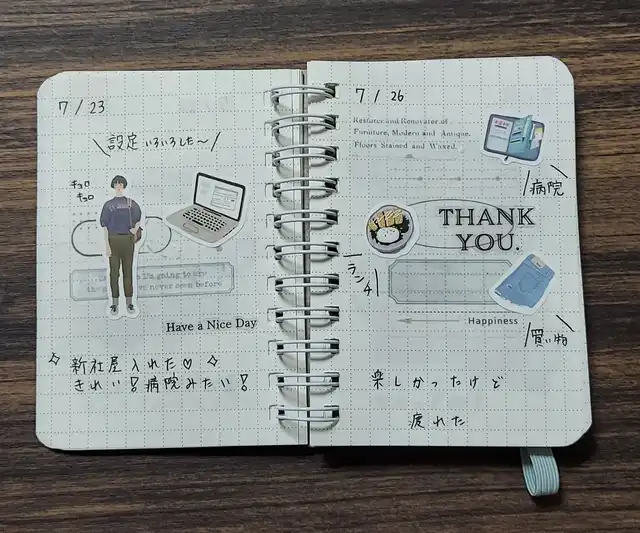 7/23
設定いろいろした〜
キョロ
キョロ
Have a Nice Day
新社屋入れた♡
きれい!病院みたい!
7/26
Restorer and Renovator of
Furniture, Modern and Antique.
Floors Stained and Waxed.
病院
THANK
YOU.
ランチ
Happiness
買い物
楽しかったけど
疲れた